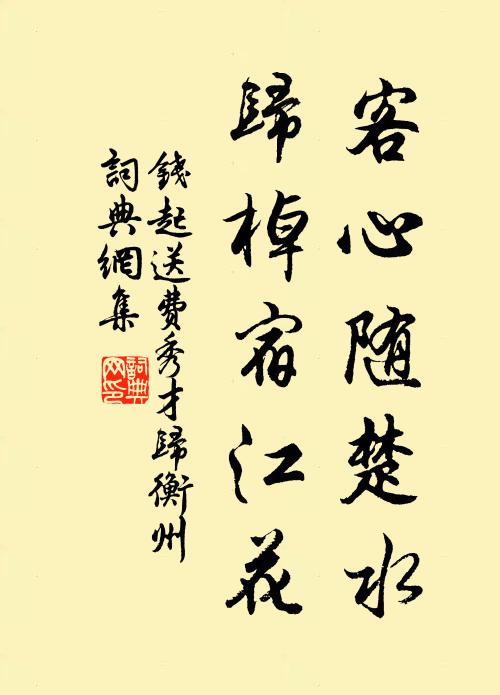 客心随楚水
歸棹宿江花
錢起送費秀才歸衡州
詞典網集
詞典
网印